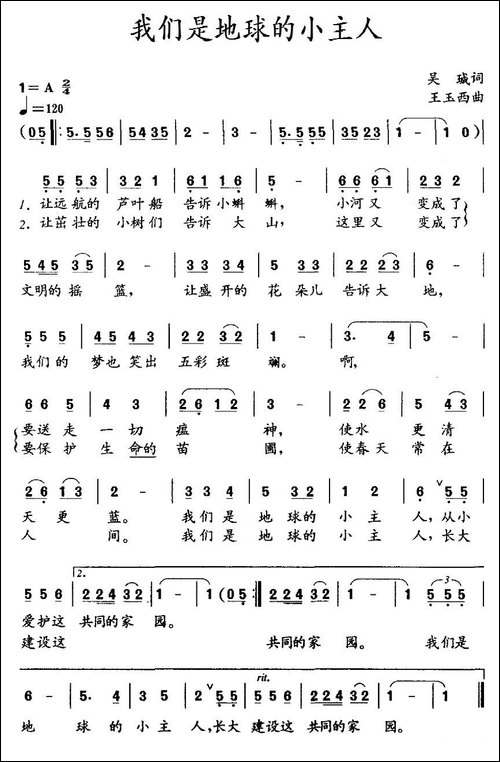 我们是地球的小主人
1=A 2/4
♩=120
吴 珹词
王玉西曲
(05 ‖: 5.556 | 5435 | 2 - | 3 - | 5.555 | 3523 | 1 - | 1 0)
55 53 | 321 | 61 16 | 5 - | 66 61 | 323 |
1. 让远航的 芦叶船 告诉小蝌 蚪, 小河又 变成了
2. 让茁壮的 小树们 告诉 大 山, 这里又 变成了
545 35 | 2 - | 33 34 | 5 53 | 22 23 | 6 - |
文明的摇 篮, 让盛开的 花 朵儿 告诉大 地,
55 5 | 45 43 | 22 32 | 1 - | 3. 4 | 5 - |
我们的 梦也笑出 五彩斑 斓。 啊,
66 5 | 4 3 | 26 12 | 3 - | 22 6 | 5 43 |
要送走 一 切 瘟 神, 使水 更 清
要保护 生 命的 苗 圃, 使春天 常 在
26 13 | 2 - | 33 3 | 5 32 | 1 2 | 6 ˅55 |
天 更 蓝。 我们是 地 球的 小 主 人, 从小
人 间。 我们是 地 球的 小 主 人, 长大
55 6 | 2243 32 | 1 - | 1 (05) :‖ 2. 2243 32 | 1 - | 1 555 |
爱护这 共同的家 园。
建设这 共同的家 园。 我们是
rit.
6 - | 5. 3 | 3 5 | 2 ˅55 | 55 6 | 2243 32 | 1 - | 1 - ‖
地 球 的 小 主 人,长大 建设这 共同的家 园。